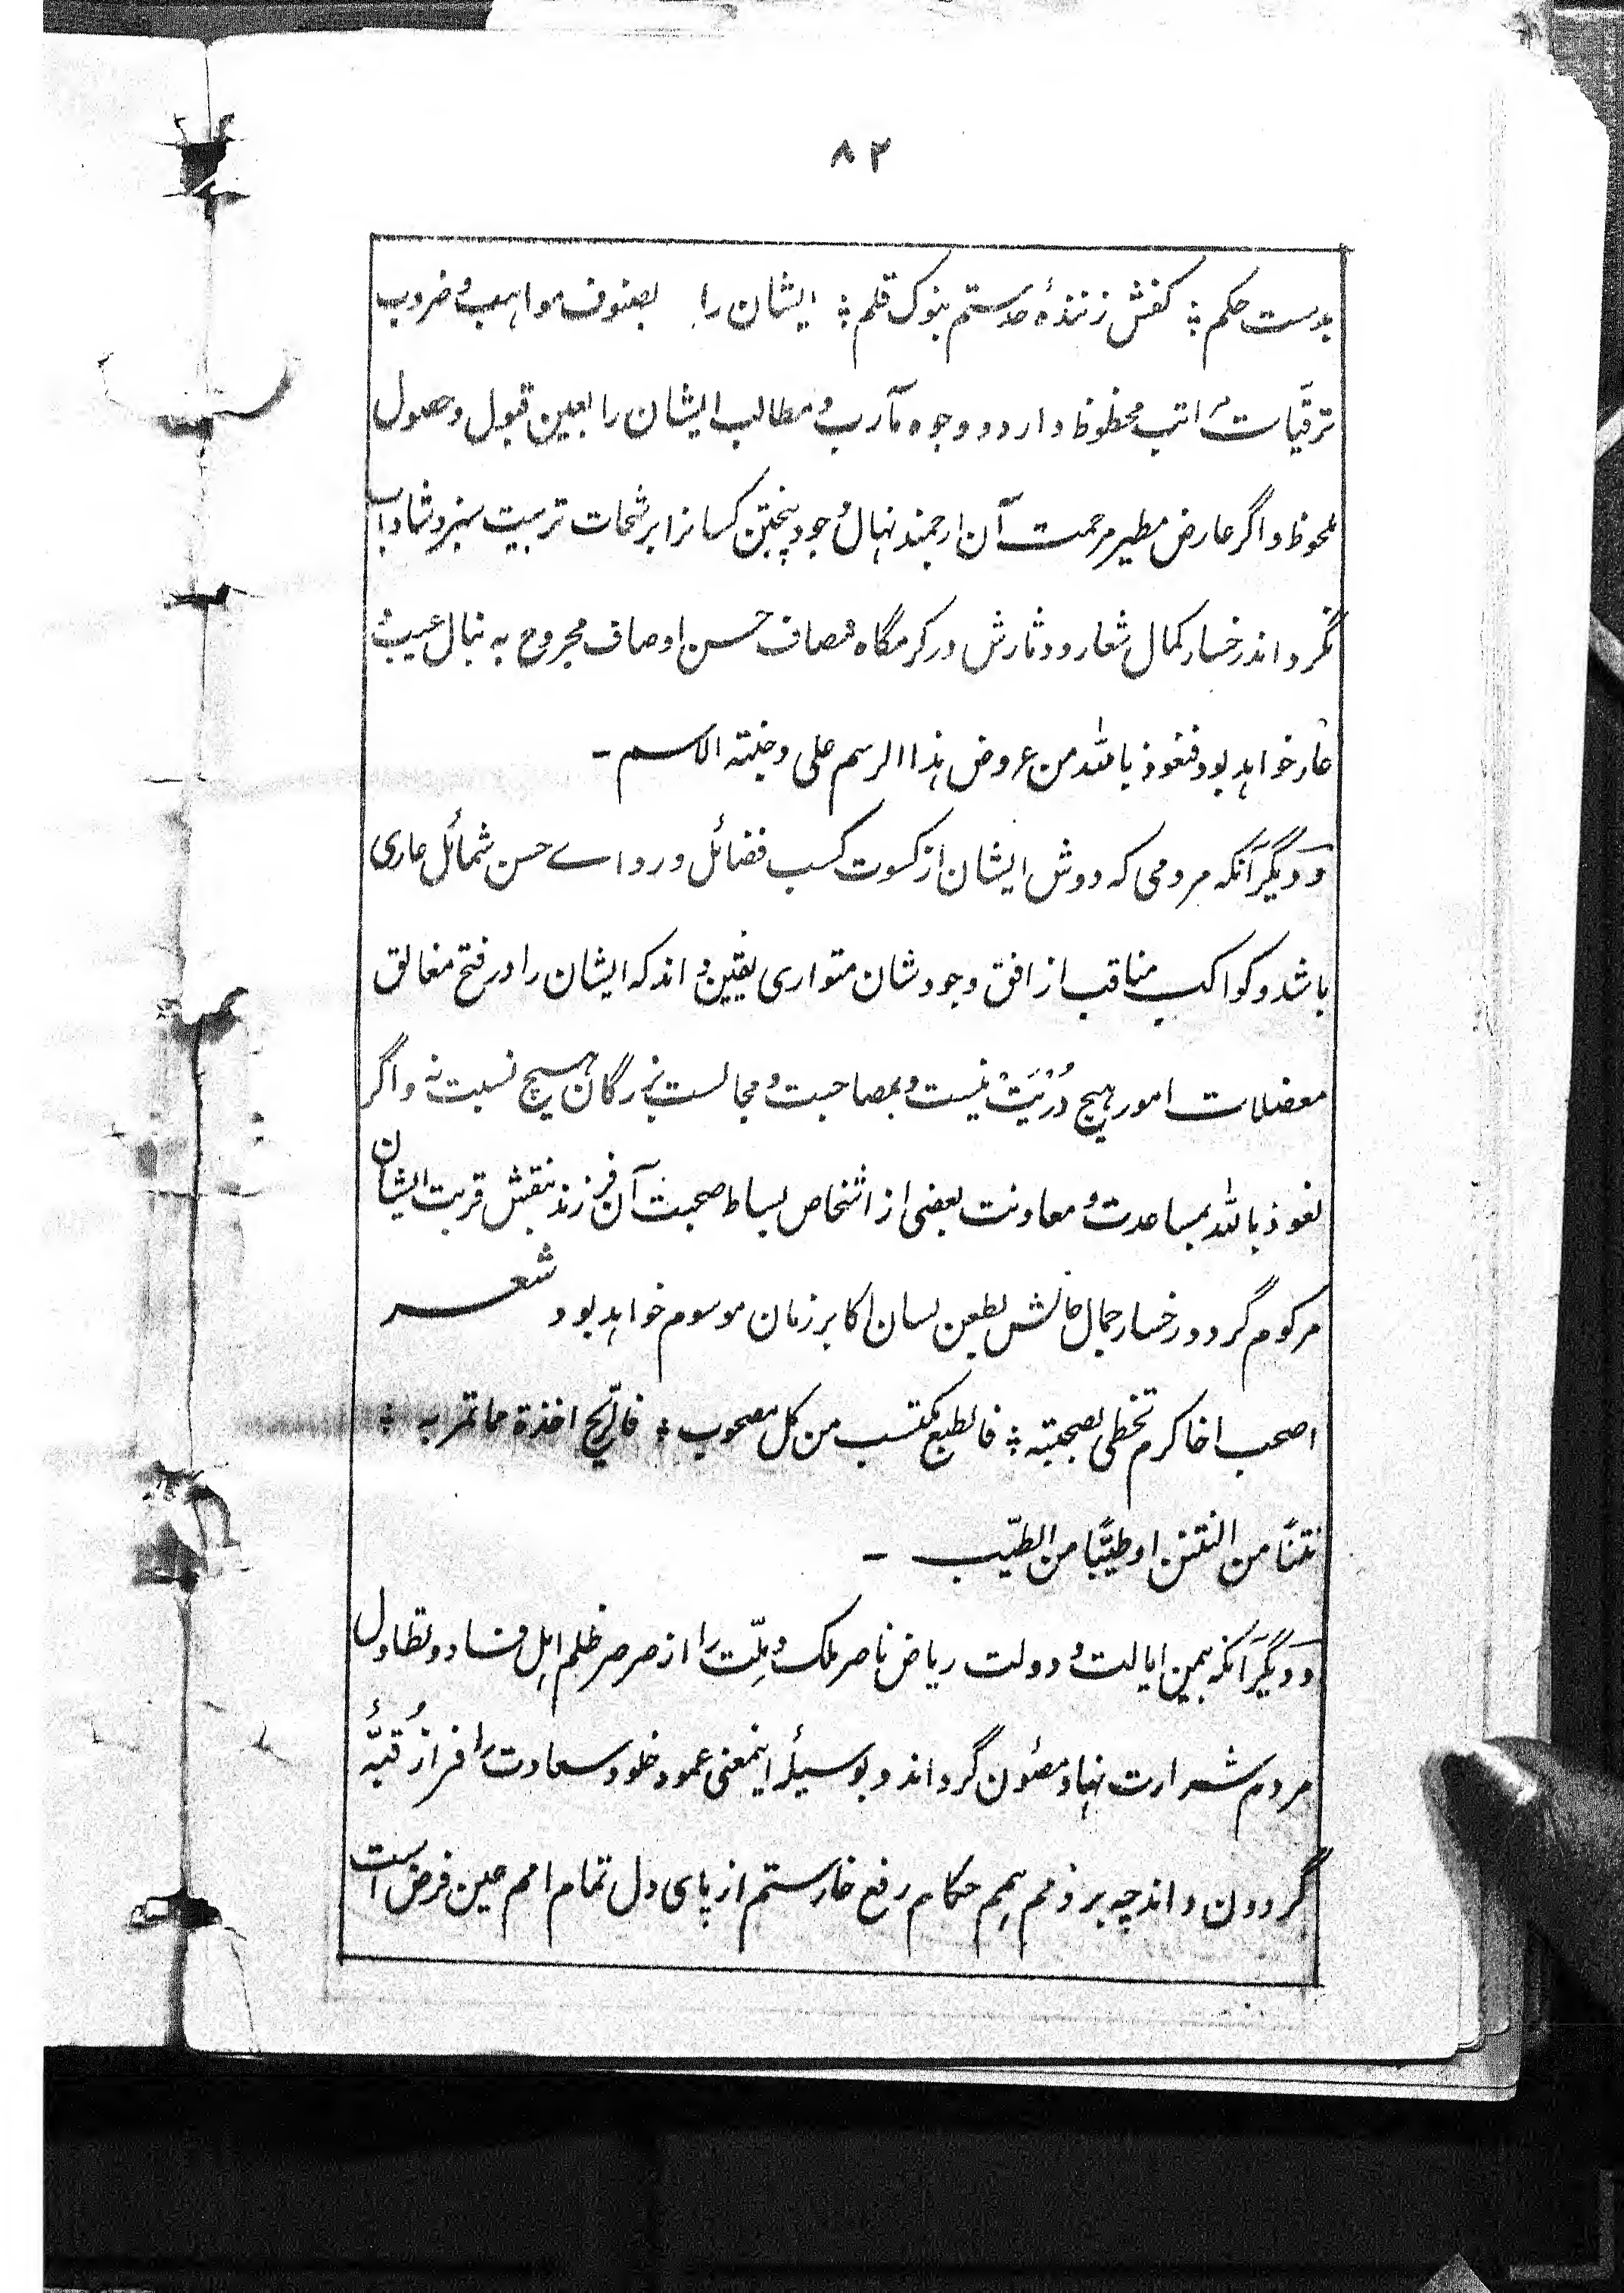 ۸۲
بدست حکم ؛ کفش زنندهٔ حد ستم بنوک قلم ؛ ایشان را بصنوف مواہب و ضروب
ترقیات مراتب محظوظ دارد و وجوه مآرب و مطالب ایشان را بعین قبول و حصول
ملحوظ و اگر عارض مطیر مرحمت آن ارجمند نہال وجود چنین کسانرا برشحات تربیت سبز و شاداب
نگرداند رخسار کمال شعار و دثارش در کرمگاه مصاف حسن اوصاف مجروح به نبال عیب و
عار خواہد بود فنعوذ بالله من عروض ہذا الرسم علی وجنته الاسم -
و دیگر آنکه مردمی که دوش ایشان از کسوت کسب فضائل و رداے حسن شمائل عاری
باشد و کواکب مناقب از افق وجود شان متواری یقین داند که ایشان را در فتح مغالق
معضلات امور ہیچ دُرْبَتْ نیست و بمصاحبت و مجالست بزرگان ہیچ نسبت نه و اگر
نعوذ بالله بمساعدت و معاونت بعضی از اشخاص بساط صحبت آن فرزند بنقش قربت ایشان
مرکوم گردد رخسار جمال حالش بطعن لسان اکابر زمان موسوم خواہد بود شعر
اصحب اخا کرم تحظی بصحبته ؛ فالطبع مکتسب من کل مصحوب ؛ فالرّیح اخذة ما تمر به ؛
نتنًا من النتن او طیبًا من الطیّب -
و دیگر آنکه بیمن ایالت و دولت ریاض ناصر ملک و ملّت را از صرصر ظلم اہل فساد و تطاول
مردم شرارت نہاد مصئون گرداند و بوسیلهٔ اینمعنی عمود خلود سعادت را فراز قبّهٔ
گردون داند چه بر ذمم ہمم حکام رفع خار ستم از پای دل تمام امم عین فرض است